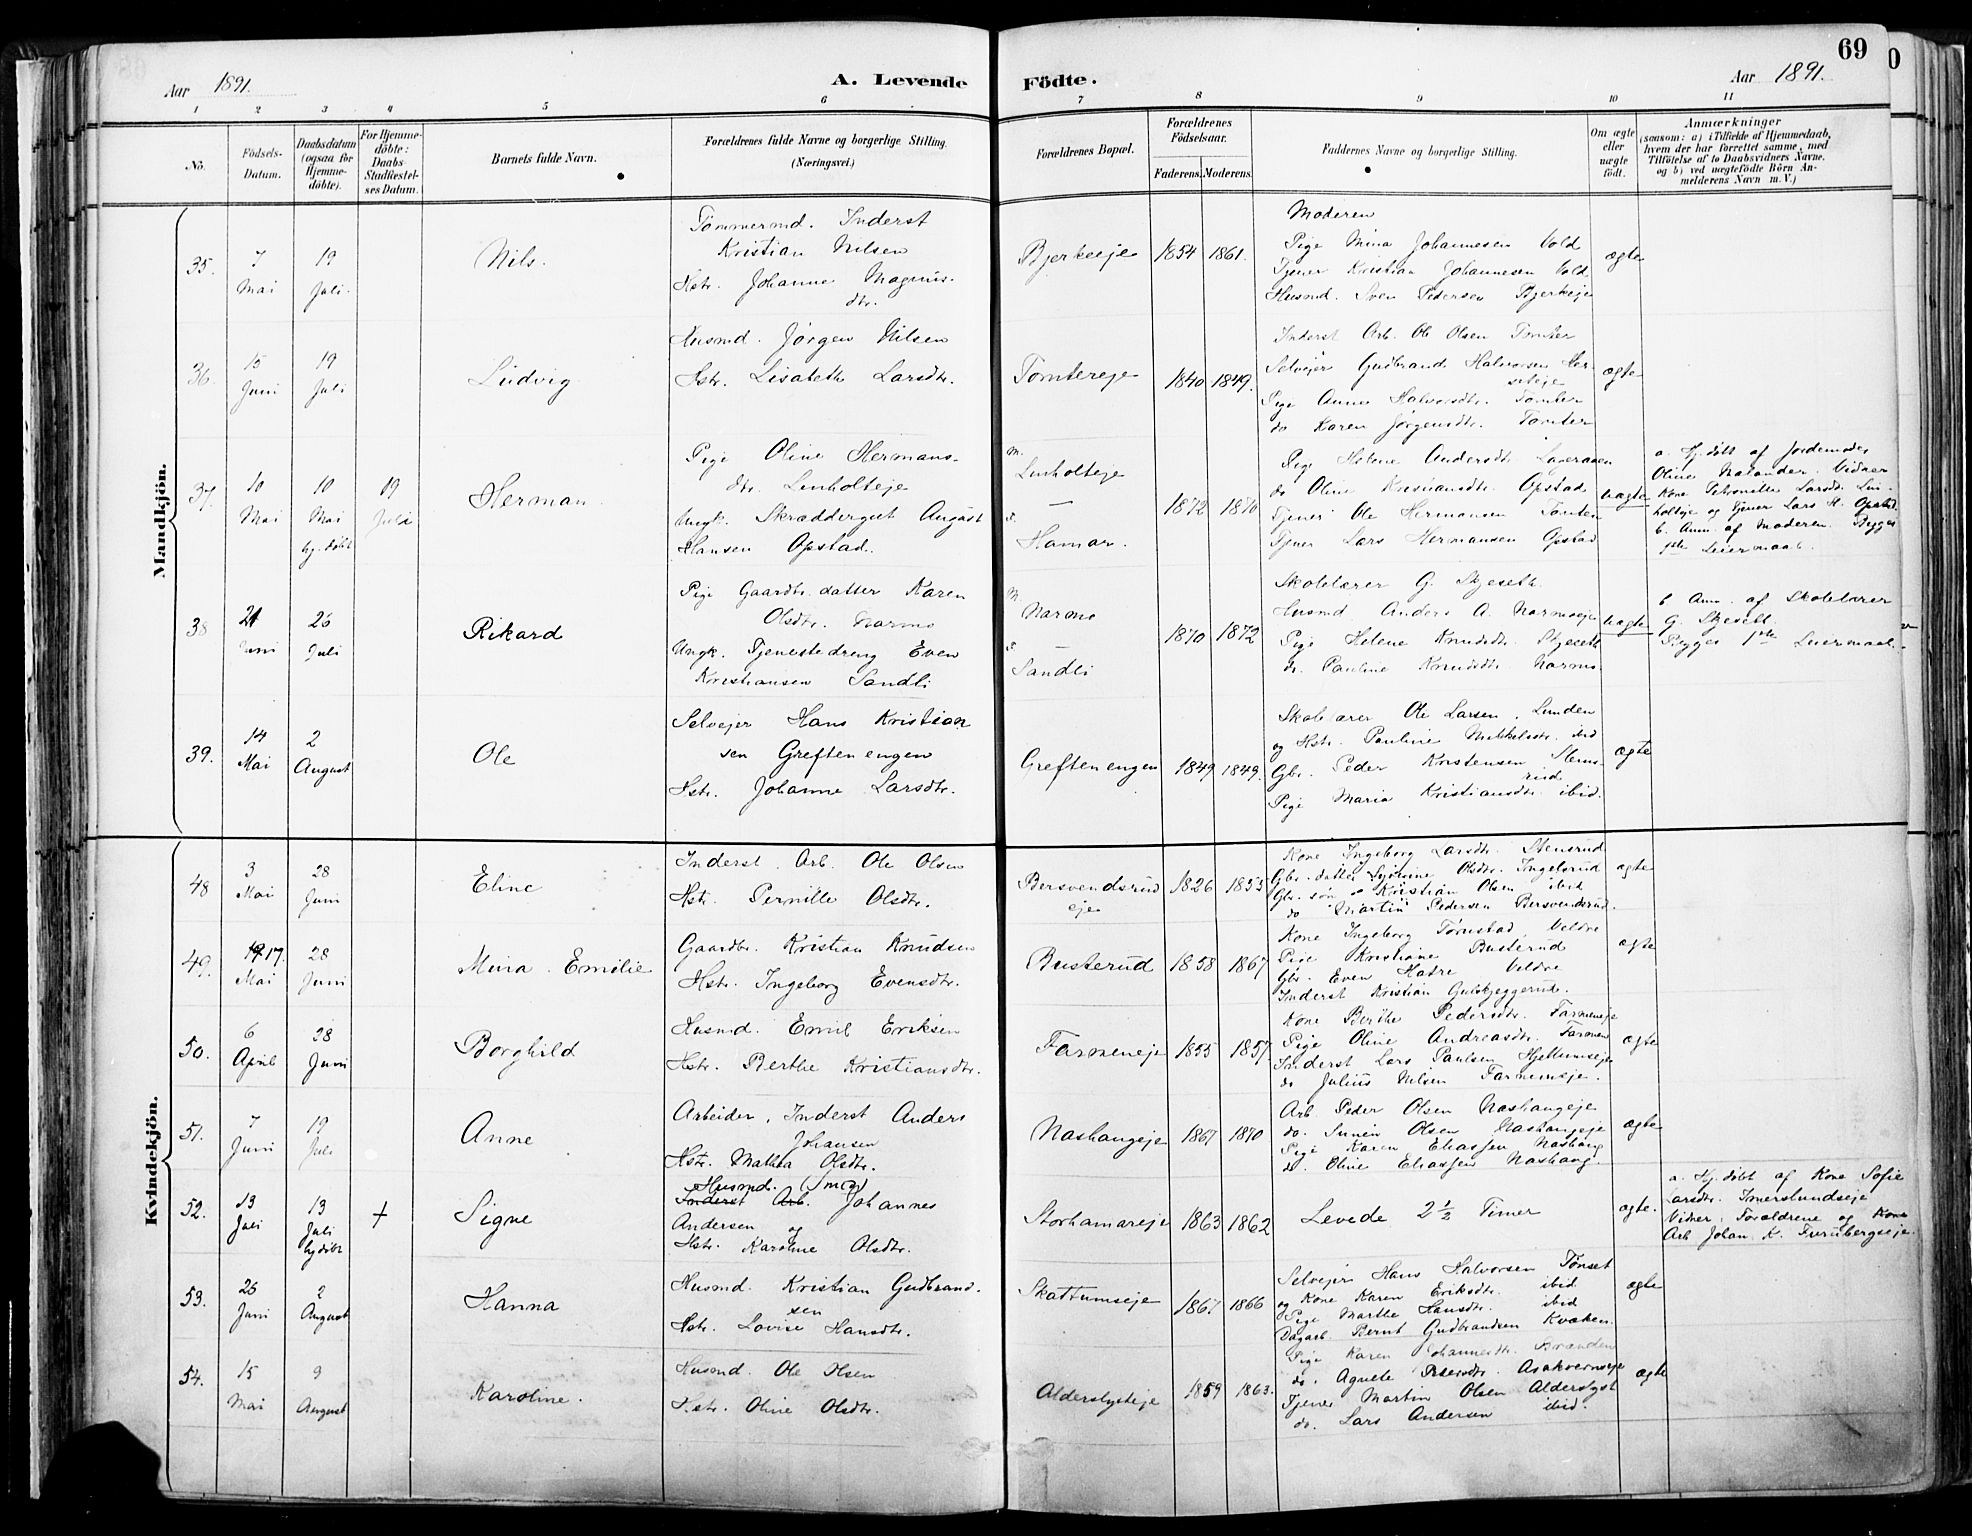 69
Aar 1891.
A. Levende Födte.
Aar 1891.
1 2 3 4 5 6 7 8 9 10 11
No.
Födsels-Datum.
Daabsdatum (ogsaa for Hjemme-döbte).
For Hjemme-döbte: Daabs-Stadfæstel-ses Datum.
Barnets fulde Navn.
Forældrenes fulde Navne og borgerlige Stilling. (Næringsvei.)
Forældrenes Bopæl.
Forældrenes Födselsaar.
Faderens. Moderens.
Faddernes Navne og borgerlige Stilling.
Om ægte eller uægte födt.
Anmærkninger
(saasom: a) i Tilfælde af Hjemmedaab,
hvem der har forrettet samme, med
Tilföielse af to Daabsvidners Navne.
og b) ved uægtefödte Börn An-
melderens Navn m. V.)
Mandkjön.
35. 7 Mai 19 Juli Nils.
Tømmermd. Inderst
Kristian Nilsen
Hstr. Johanne Magnus-
dtr.
Bjerkeeje 1854 1861.
Moderen
Pige Mina Johannesen Vold
Tjener Kristian Johannesen Vold
Husmd. Sven Pedersen Bjerkeje
ægte
36. 15 Juni 19 Juli Ludvig
Husmd. Jørgen Nilsen
Hstr. Lisabeth Larsdtr.
Tomtereje 1840 1849.
Inderst Arb. Ole Olsen Tomter
Selvejer Gudbrand Halvorsen Her-
seteje
Pige Anne Halvorsdtr. Tomter
do Karen Jørgensdtr. Tomter
ægte
37. 10 Mai 10 Mai hj. døbt 19 Juli Herman.
Pige Oline Hermans-
dtr. Lenholteje
Ungk. Skræddergut August
Hansen Opstad.
M. Lenholteje
F. Hamar.
1872 1870
Pige Helene Andersdtr.
do Oline Kristiansdtr. Opstad
Tjener Ole Hermansen
Tjener Lars Hermansen Opstad
uægte
a. Hj. døbt af Jordemoder
Oline Nalander. Vidner
Kone Petronelle Larsdtr. Len-
holteje og Tjener Lars H. Opstad.
b. Anm. af Moderen. Begges
1ste Leiermaal.
38 21 Juni 26 Juli Rikard
Pige Gaardbr. datter Karen
Olsdtr. Narmo
Ungk. Tjenestedreng Even
Kristiansen Sandli
M. Narmo
F. Sandli
1870 1872
Skolelærer G. Skjeseth.
Husmd. Anders A. Narmoeje
Pige Helene Knudsdtr. Skjeseth
do. Pauline Knudsdtr. Narmo.
uægte
b. Anm. af Skolelærer
G. Skjeseth.
Begges 1ste Leiermaal.
39. 14 Mai 2 August Ole
Selvejer Hans Kristian
sen Greftenengen
Hstr. Johanne Larsdtr.
Greftenengen 1849 1849.
Skolelærer Ole Larsen Lunden
og Hstr. Pauline Mikkelsdtr. ibid
Gbr. Peder Kristensen Stens-
rud
Pige Maria Kristiansdtr. ibid.
ægte
Kvindekjön.
48 3 Mai 28 Juni Eline
Inderst Arb. Ole Olsen
Hstr. Pernille Olsdtr.
Bersvendsrud
eje
1826 1853
Kone Ingeborg Larsdtr. Stensrud
Gbr. datter Olsdtr. Ingelsrud
Gbr. søn Kristian Olsen ibid
do Martin Pedersen Bersvendsrud.
ægte
49. 17. Mai 28 Juni Mina Emilie
Gaardbr. Kristian Knudsen
Hstr. Ingeborg Evensdtr.
Busterud 1858 1867
Kone Ingeborg Tørustad Veldre
Pige Kristiane Busterud
Gbr. Even Hatre Veldre
Inderst Kristian Gulskjeggerud.
ægte
50. 6 April 28 Juni Borghild
Husmd. Emil Eriksen
Hstr. Berthe Kristiansdtr.
Farmeneje 1855 1857.
Kone Berthe Pedersdtr. Farmeneje
Pige Oline Andreasdtr. Farmen
Inderst Lars Paulsen Hjellumseje
do Julius Nilsen Farmeneje.
ægte
51. 7 Juni 19 Juli Anne
Arbeider, Inderst Anders
Johansen
Hstr. Mathea Olsdtr.
Nashaugeje 1867 1870
Arb. Peder Olsen Nashaugeje
do. Simen Olsen Nashaugeje
Pige Karen Eliassen Nashaug
do. Oline Eliassen Nashaug.
ægte
52. 13 Juli 13 Juli hj døbt + Signe
Husmd. (Smed)
Inderst Arb. Johannes
Andersen og
Hstr. Karoline Olsdtr.
Storhamareje 1863 1862
Levede 2 1/2 Timer
ægte.
a. Hj. døbt af Kone Sofie
Larsdtr. Imerslundseje
Vidner, Forældrene og Kone
Arb Johan K. Furubergseje.
53. 26 Juni 2 August Hanna
Husmd. Kristian Gudbrand-
sen
Hstr. Lovise Hansdtr.
Skattumseje 1867. 1866
Selvejer Hans Halvorsen Tønset
og Kone Karen Eriksdtr. ibid
Pige Marthe Hansdtr. ibid
Dagarb. Bernt Gudbrandsen Kvæken.
ægte
54. 15 Mai 9 August Karoline.
Husmd. Ole Olsen
Hstr. Oline Olsdtr.
Alderslysteje 1859 1863.
Pige Karen Johannesdtr. Brænden
do. Agnete Pedersdtr. Aasakverneje
Tjener Martin Olsen Alderslyst
do. Lars Andersen ibid.
ægte